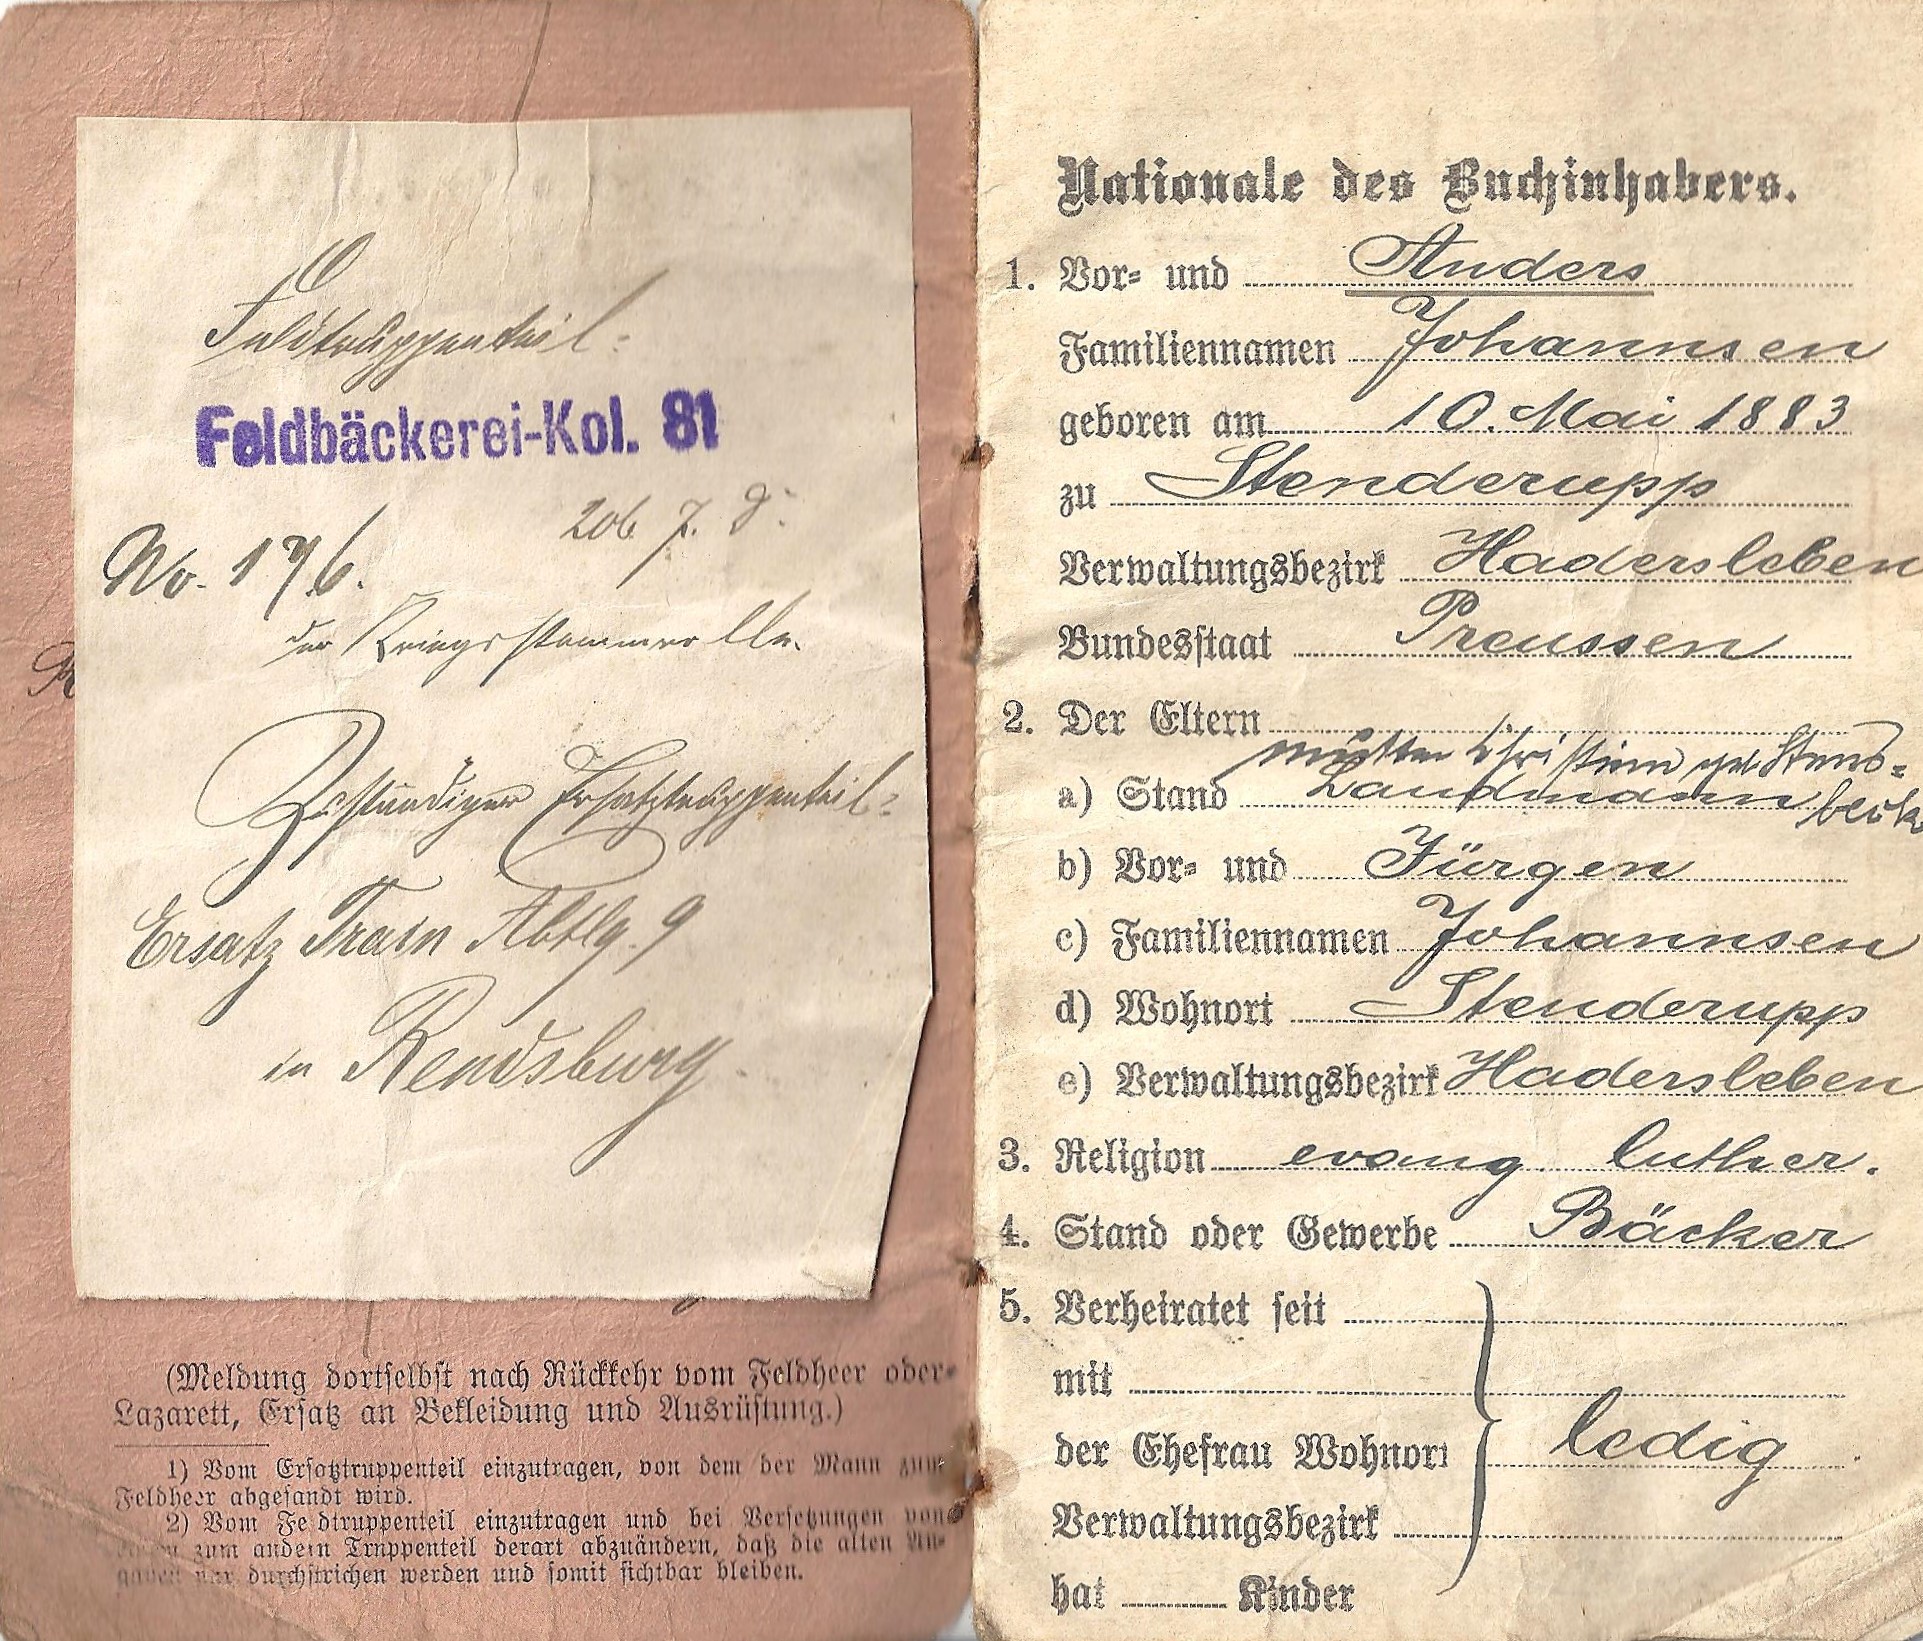 Feldtruppenteil:
Feldbäckerei-Kol. 81
206 J. D.
No. 176.
der Kriegsstammrolle.
Zuständiger Ersatztruppenteil:
Ersatz Train Abtlg. 9
in Rendsburg
(Meldung dortselbst nach Rückkehr vom Feldheer oder
Lazarett, Ersatz an Bekleidung und Ausrüstung.)
1) Vom Ersatztruppenteil einzutragen, von dem der Mann zum
Feldheer abgesandt wird.
2) Vom Feldtruppenteil einzutragen und bei Versetzungen von
zum andern Truppenteil derart abzuändern, daß die alten An-
gaben nur durchstrichen werden und somit sichtbar bleiben.
Nationale des Buchinhabers.
1. Vor- und Anders
Familiennamen Johannsen
geboren am 10. Mai 1883
zu Stenderupp
Verwaltungsbezirk Hadersleben
Bundesstaat Preussen
2. Der Eltern
Mutter Christine geb. Stens-
a) Stand Landmann beck
b) Vor- und Jürgen
c) Familiennamen Johannsen
d) Wohnort Stenderupp
e) Verwaltungsbezirk Hadersleben
3. Religion evang. luther.
4. Stand oder Gewerbe Bäcker
5. Verheiratet seit
mit
der Ehefrau Wohnort ledig
Verwaltungsbezirk
hat Kinder